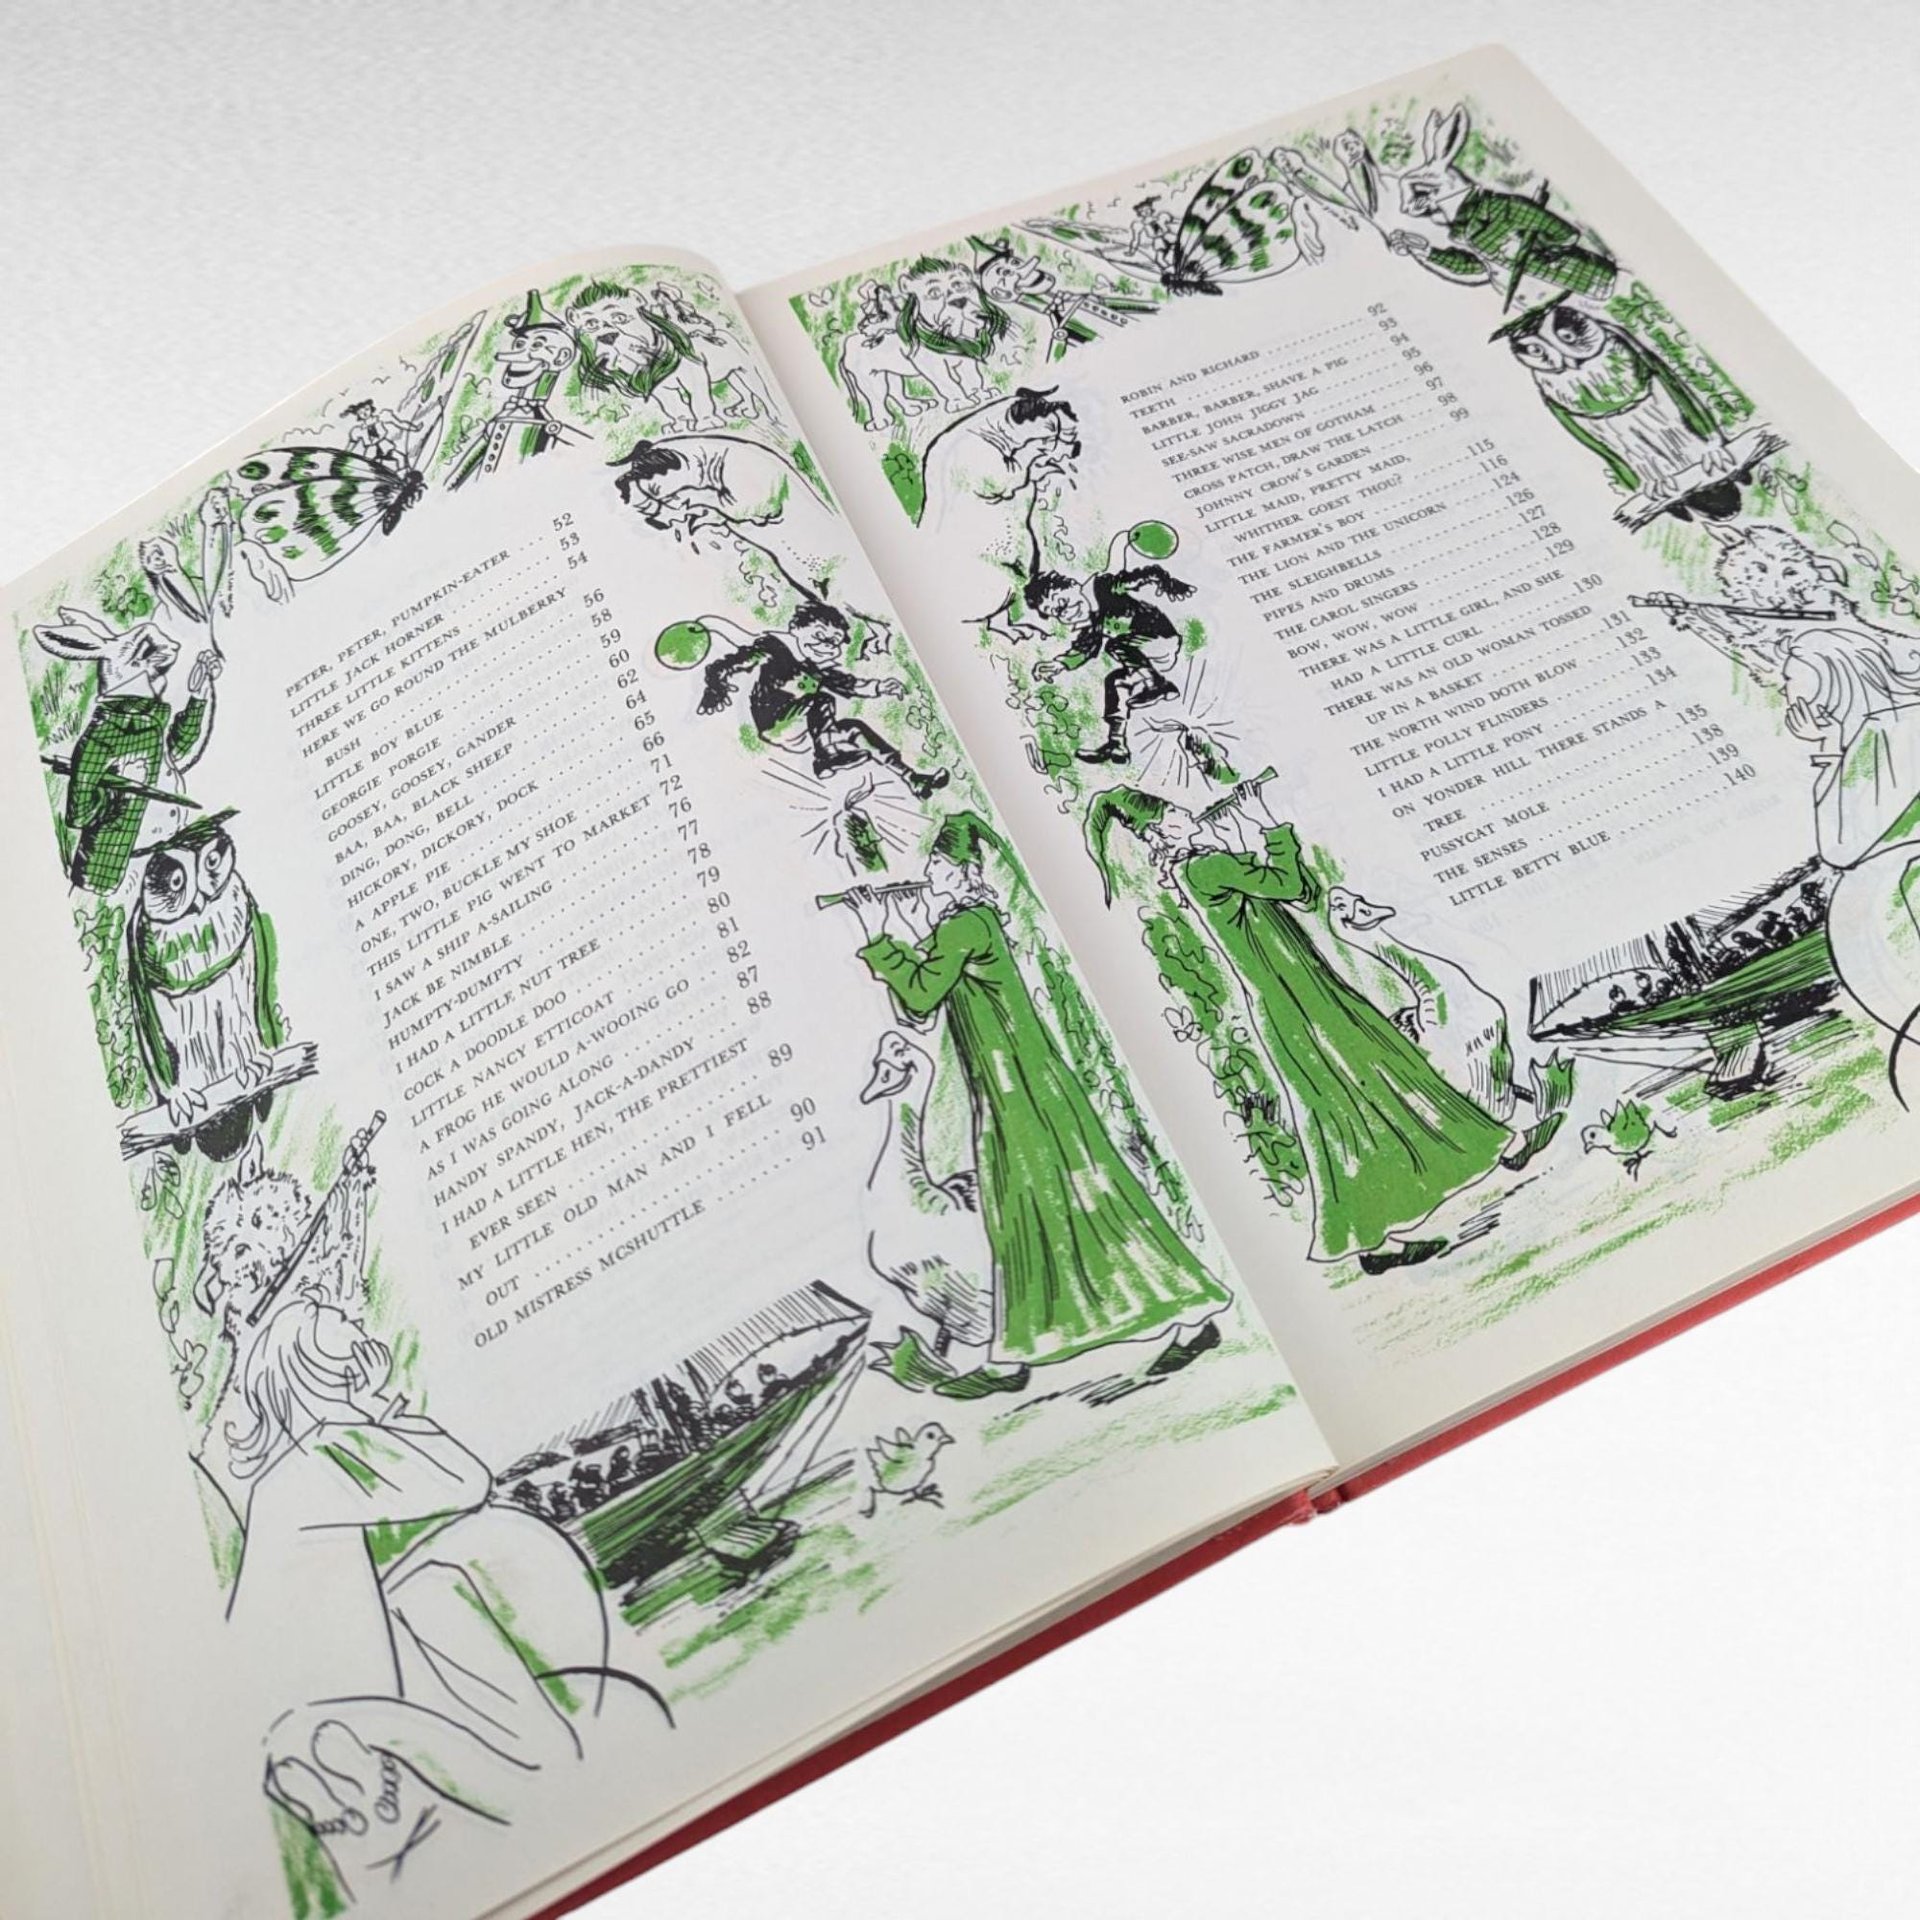 PETER, PETER, PUMPKIN-EATER ... 52
LITTLE JACK HORNER .......... 53
THREE LITTLE KITTENS .......... 54
HERE WE GO ROUND THE MULBERRY
BUSH .......... 56
LITTLE BOY BLUE .......... 58
GEORGIE PORGIE .......... 59
GOOSEY, GOOSEY, GANDER .......... 60
BAA, BAA, BLACK SHEEP .......... 62
DING, DONG, BELL .......... 64
HICKORY, DICKORY, DOCK .......... 65
A APPLE PIE .......... 66
ONE, TWO, BUCKLE MY SHOE .......... 71
THIS LITTLE PIG WENT TO MARKET 72
I SAW A SHIP A-SAILING .......... 76
JACK BE NIMBLE .......... 77
HUMPTY-DUMPTY .......... 78
I HAD A LITTLE NUT TREE .......... 79
COCK A DOODLE DOO .......... 80
LITTLE NANCY ETTICOAT .......... 81
A FROG HE WOULD A-WOOING GO .. 82
AS I WAS GOING ALONG .......... 87
HANDY SPANDY, JACK-A-DANDY .... 88
I HAD A LITTLE HEN, THE PRETTIEST
EVER SEEN .......... 89
MY LITTLE OLD MAN AND I FELL
OUT .......... 90
OLD MISTRESS MCSHUTTLE ...... 91
ROBIN AND RICHARD .......... 92
TEETH .......... 93
BARBER, BARBER, SHAVE A PIG ..... 94
LITTLE JOHN JIGGY JAG .......... 95
SEE-SAW SACRADOWN .......... 96
THREE WISE MEN OF GOTHAM ..... 97
CROSS PATCH, DRAW THE LATCH ... 98
JOHNNY CROW'S GARDEN .......... 99
LITTLE MAID, PRETTY MAID,
WHITHER GOEST THOU? ...... 115
THE FARMER'S BOY .......... 116
THE LION AND THE UNICORN ...... 124
THE SLEIGHBELLS .......... 126
PIPES AND DRUMS .......... 127
THE CAROL SINGERS .......... 128
BOW, WOW, WOW .......... 129
THERE WAS A LITTLE GIRL, AND SHE
HAD A LITTLE CURL .......... 130
THERE WAS AN OLD WOMAN TOSSED
UP IN A BASKET .......... 131
THE NORTH WIND DOTH BLOW .... 132
LITTLE POLLY FLINDERS .......... 133
I HAD A LITTLE PONY .......... 134
ON YONDER HILL THERE STANDS A
TREE .......... 135
PUSSYCAT MOLE .......... 138
THE SENSES .......... 139
LITTLE BETTY BLUE .......... 140